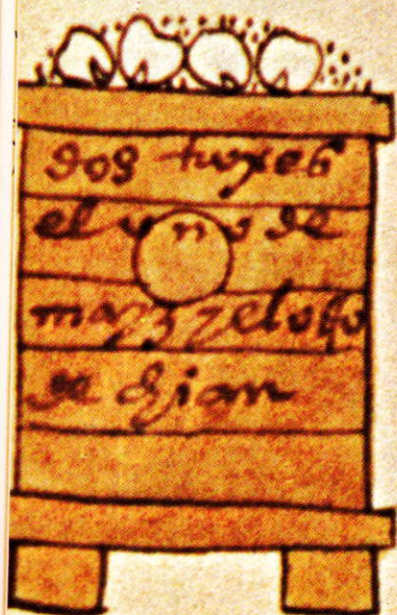 dos troxes
el vno de
mayz y el otro
de chian